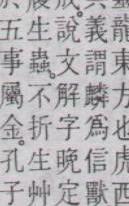 龍東方也虎西
義謂麟爲信獸
說文解字晚定
生蟲。不折生艸
五事屬金。孔子